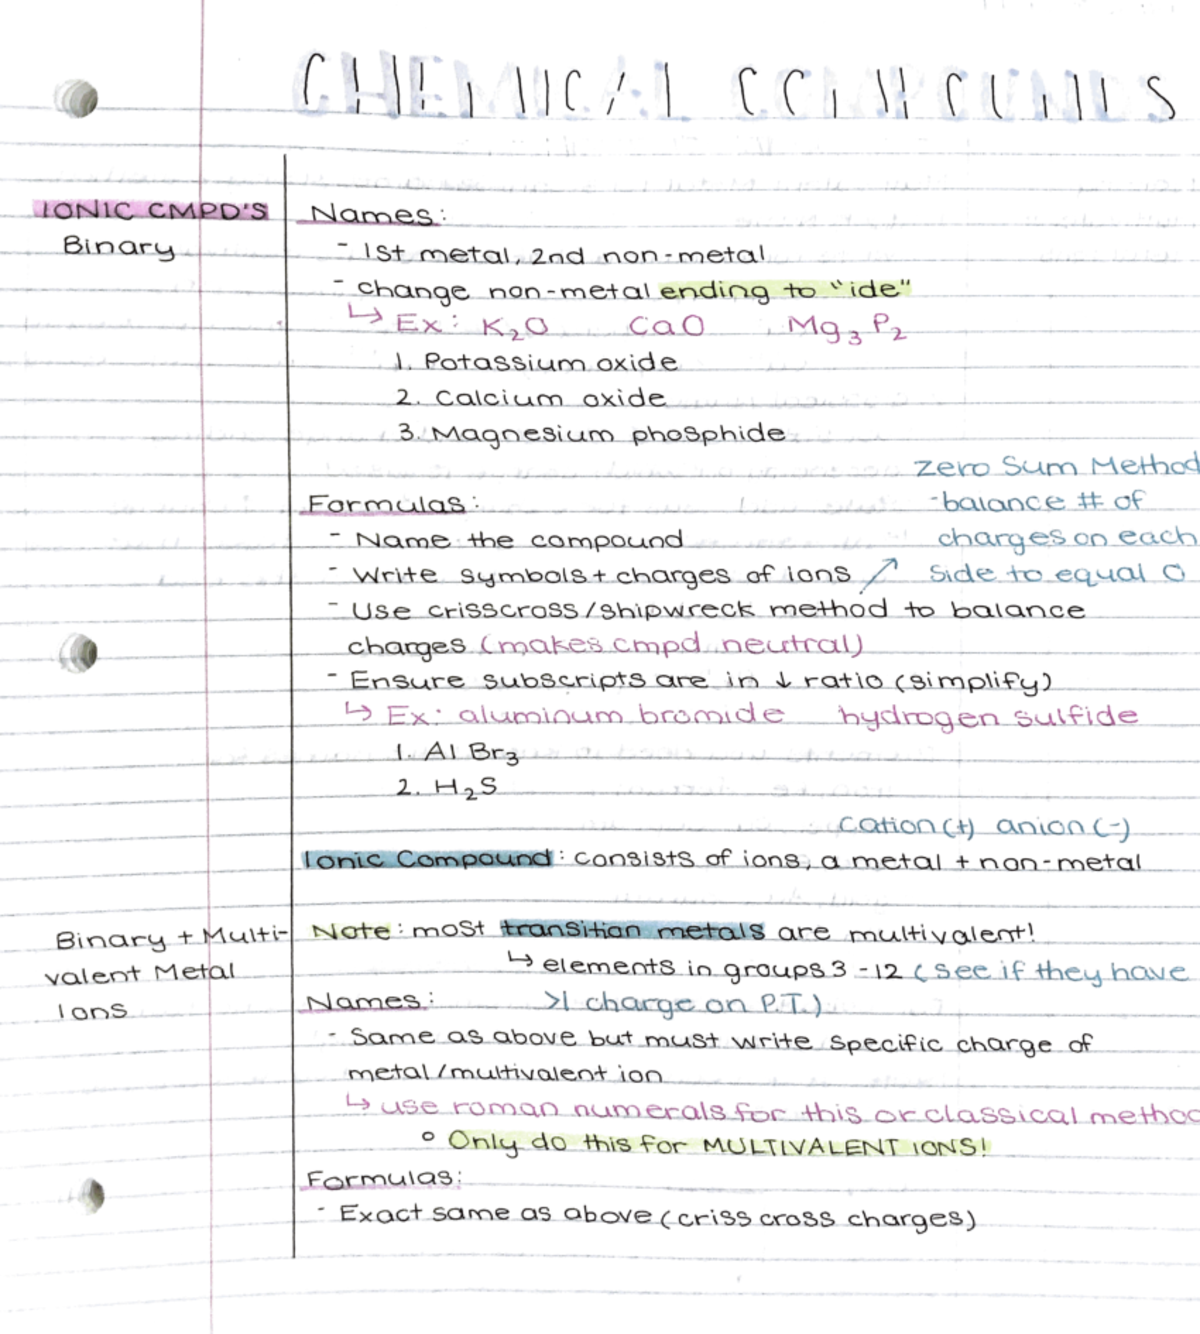 CHEMICAL COMPOUNDS
IONIC CMPD'S
Binary
Names:
- 1st metal, 2nd non-metal
- change non-metal ending to "ide"
↳ Ex: K₂O CaO Mg₃P₂
1. Potassium oxide
2. Calcium oxide
3. Magnesium phosphide
zero sum Method
-balance # of
charges on each
side to equal 0
Formulas:
- Name the compound
- Write symbols + charges of ions ↗
- Use crisscross/shipwreck method to balance
charges (makes cmpd neutral)
- Ensure subscripts are in ↓ ratio (simplify)
↳ Ex: aluminum bromide hydrogen sulfide
1. AlBr₃
2. H₂S
cation (+) anion (-)
Ionic Compound: consists of ions, a metal + non-metal
Binary + Multi-
valent Metal
Ions
Note: most transition metals are multivalent!
↳ elements in groups 3-12 (see if they have
>1 charge on P.T.)
Names:
- Same as above but must write specific charge of
metal/multivalent ion
↳ use roman numerals for this or classical method
° Only do this for MULTIVALENT IONS!
Formulas:
- Exact same as above (criss cross charges)